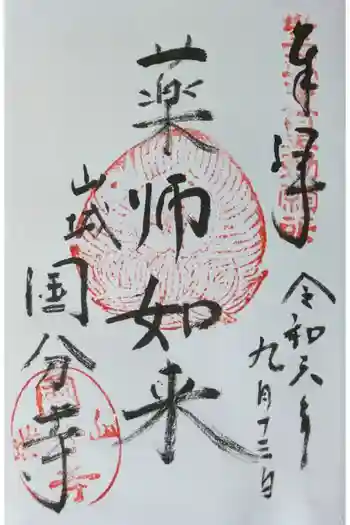 奉拝
令和六年
九月十三日
薬師如来
山城
國分寺